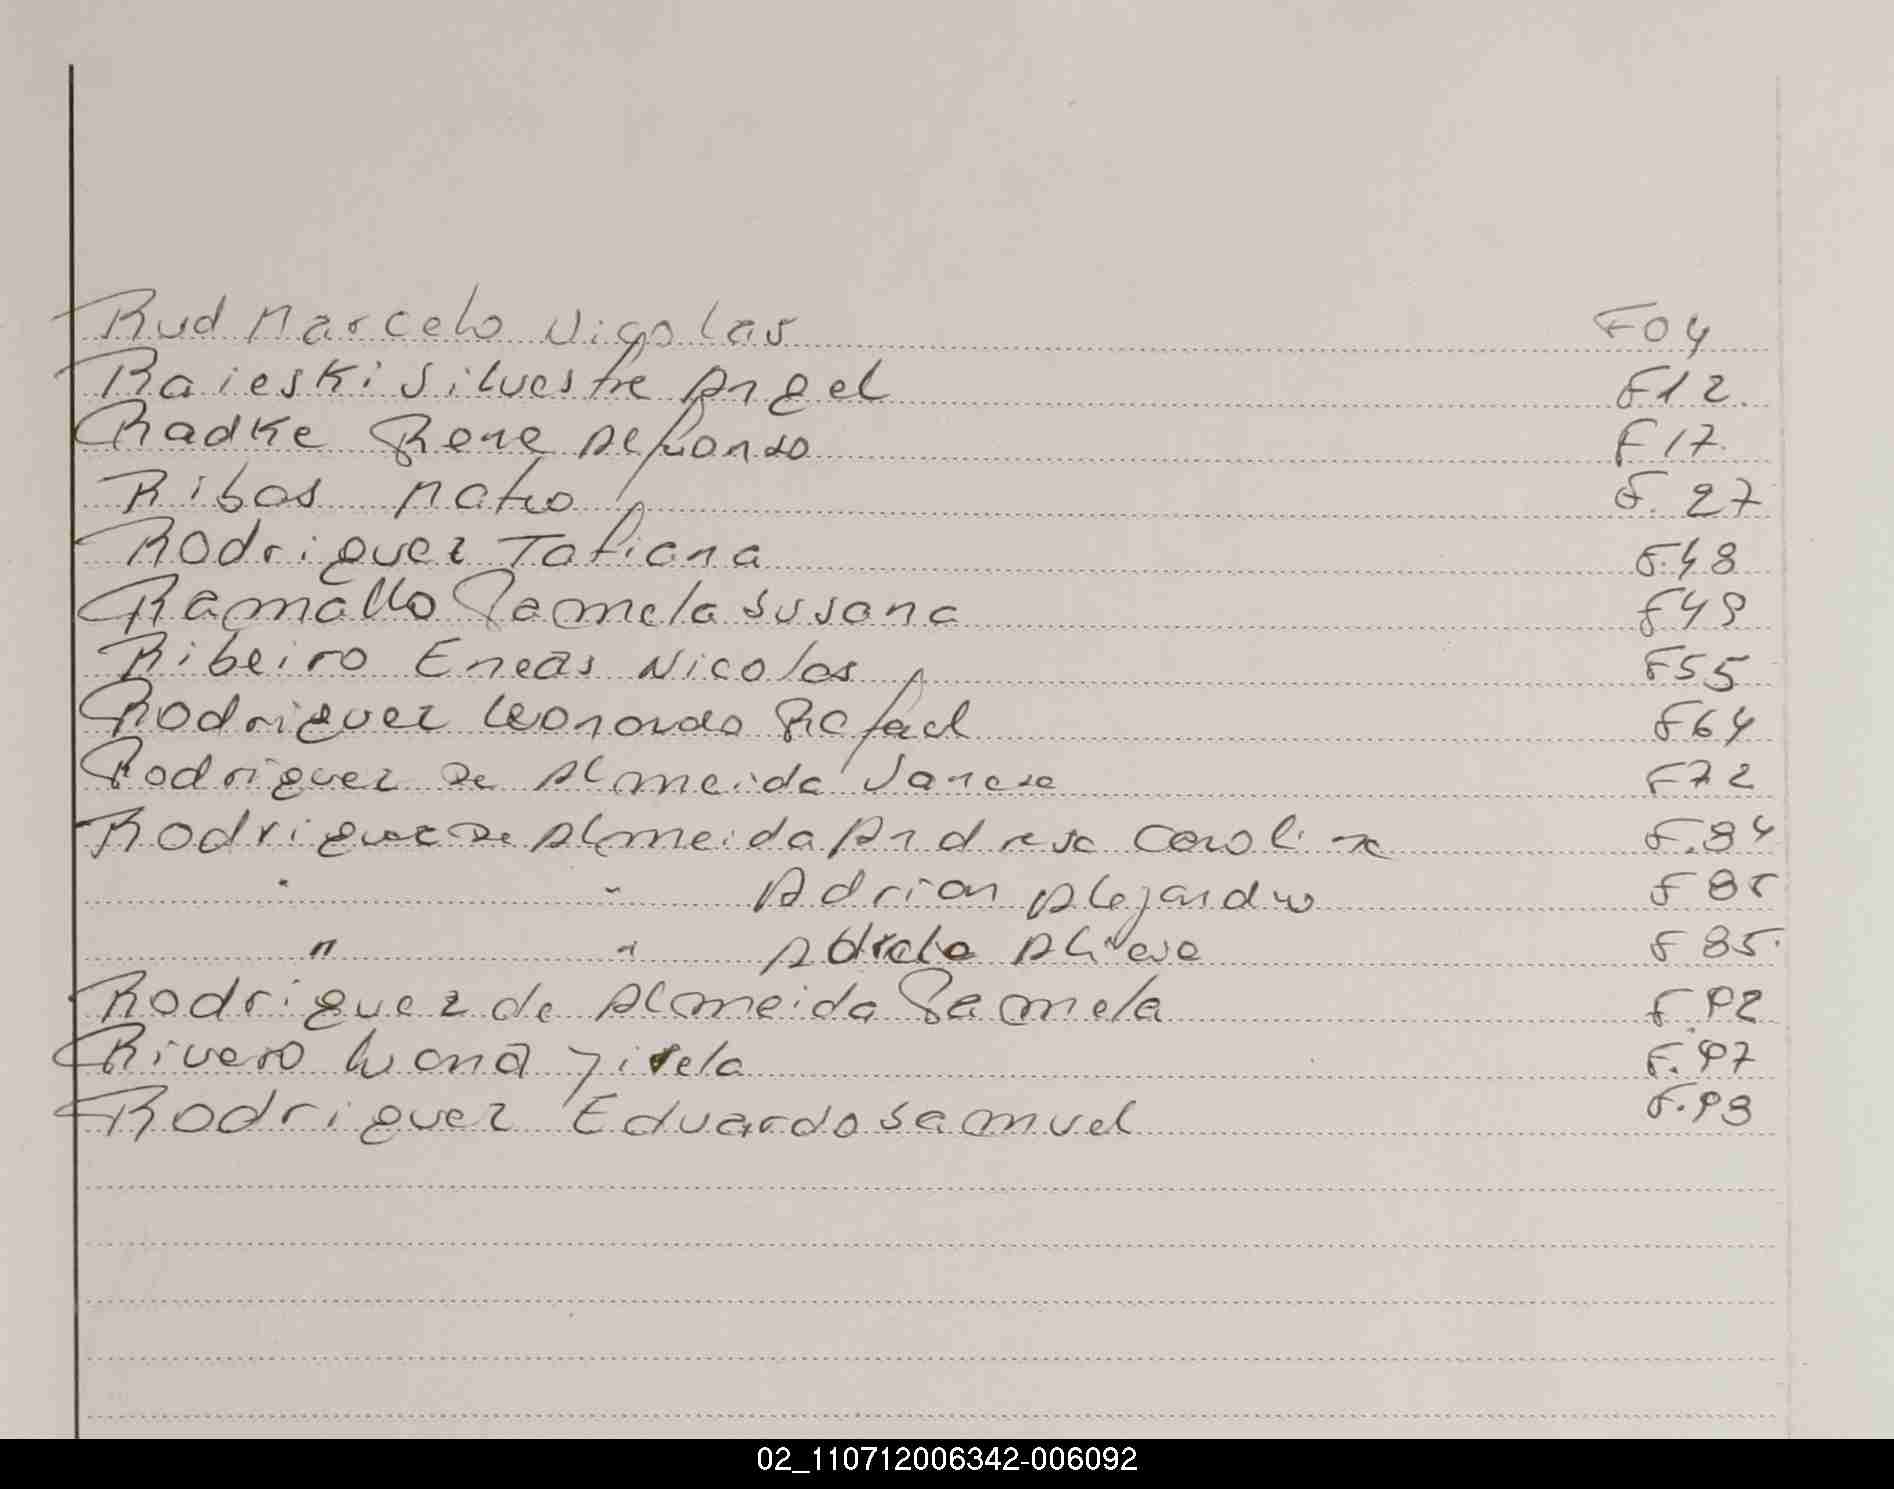 Rud Marcelo Nicolas F04
Raieski Silvestre Angel F12.
Radke Rene Alfonso F17.
Ribas Mateo F. 27
Rodriguez Tatiana F.48
Ramallo Pamela Susana F49
Ribeiro Eneas Nicolas F55
Rodriguez Leonardo Rafael F64
Rodriguez De Almeida Vanesa F72
Rodriguez De Almeida Andresa Carolina F.84
" " Adrian Alejandro F 85
" " F 85.
Rodriguez de Almeida Pamela F.92
Rivero Luana Yisela F.97
Rodriguez Eduardo Samuel F.98
02_110712006342-006092